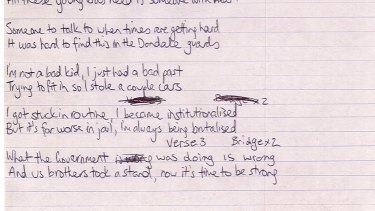 All these young boys need is someone with
Someone to talk to when times are getting hard
It was hard to find this in the Dondale guards
I'm not a bad kid, I just had a bad past
Trying to fit in so I stole a couple cars
x2
I got stuck in routine, I became institutionalised
But it's far worse in jail, I'm always being brutalised
Verse 3 Bridge x2
What the Government was doing is wrong
And us brothers took a stand, now it's time to be strong